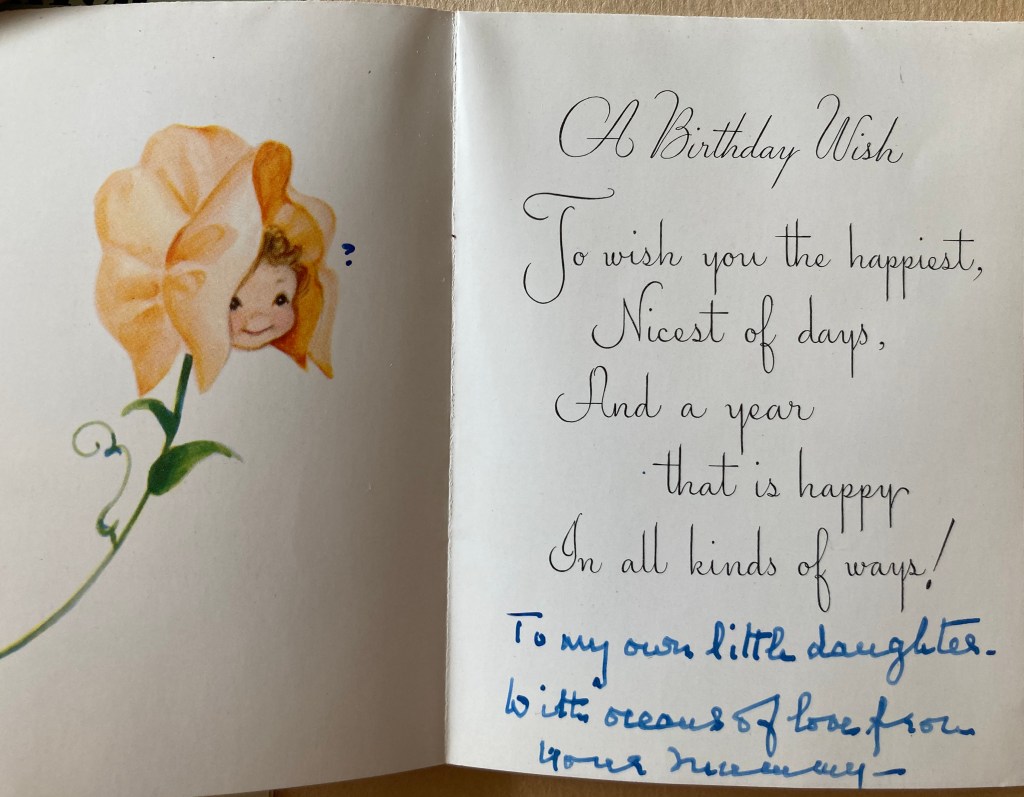 ?
A Birthday Wish
To wish you the happiest,
Nicest of days,
And a year
that is happy
In all kinds of ways!
To my own little daughter.
With oceans of love from
your Mummy—